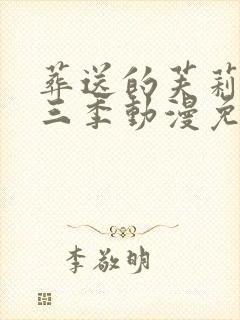 葬送的芙莉
三季動漫免
李敬明